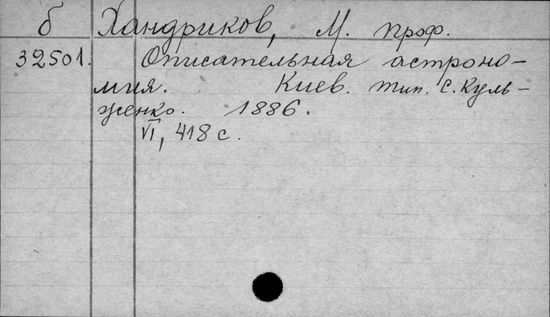 б Хандриков, М. проф.
32501. Описательная астроно-
мия. Киев. тип. С. Куль-
женко. 1886.
VI, 418 с.